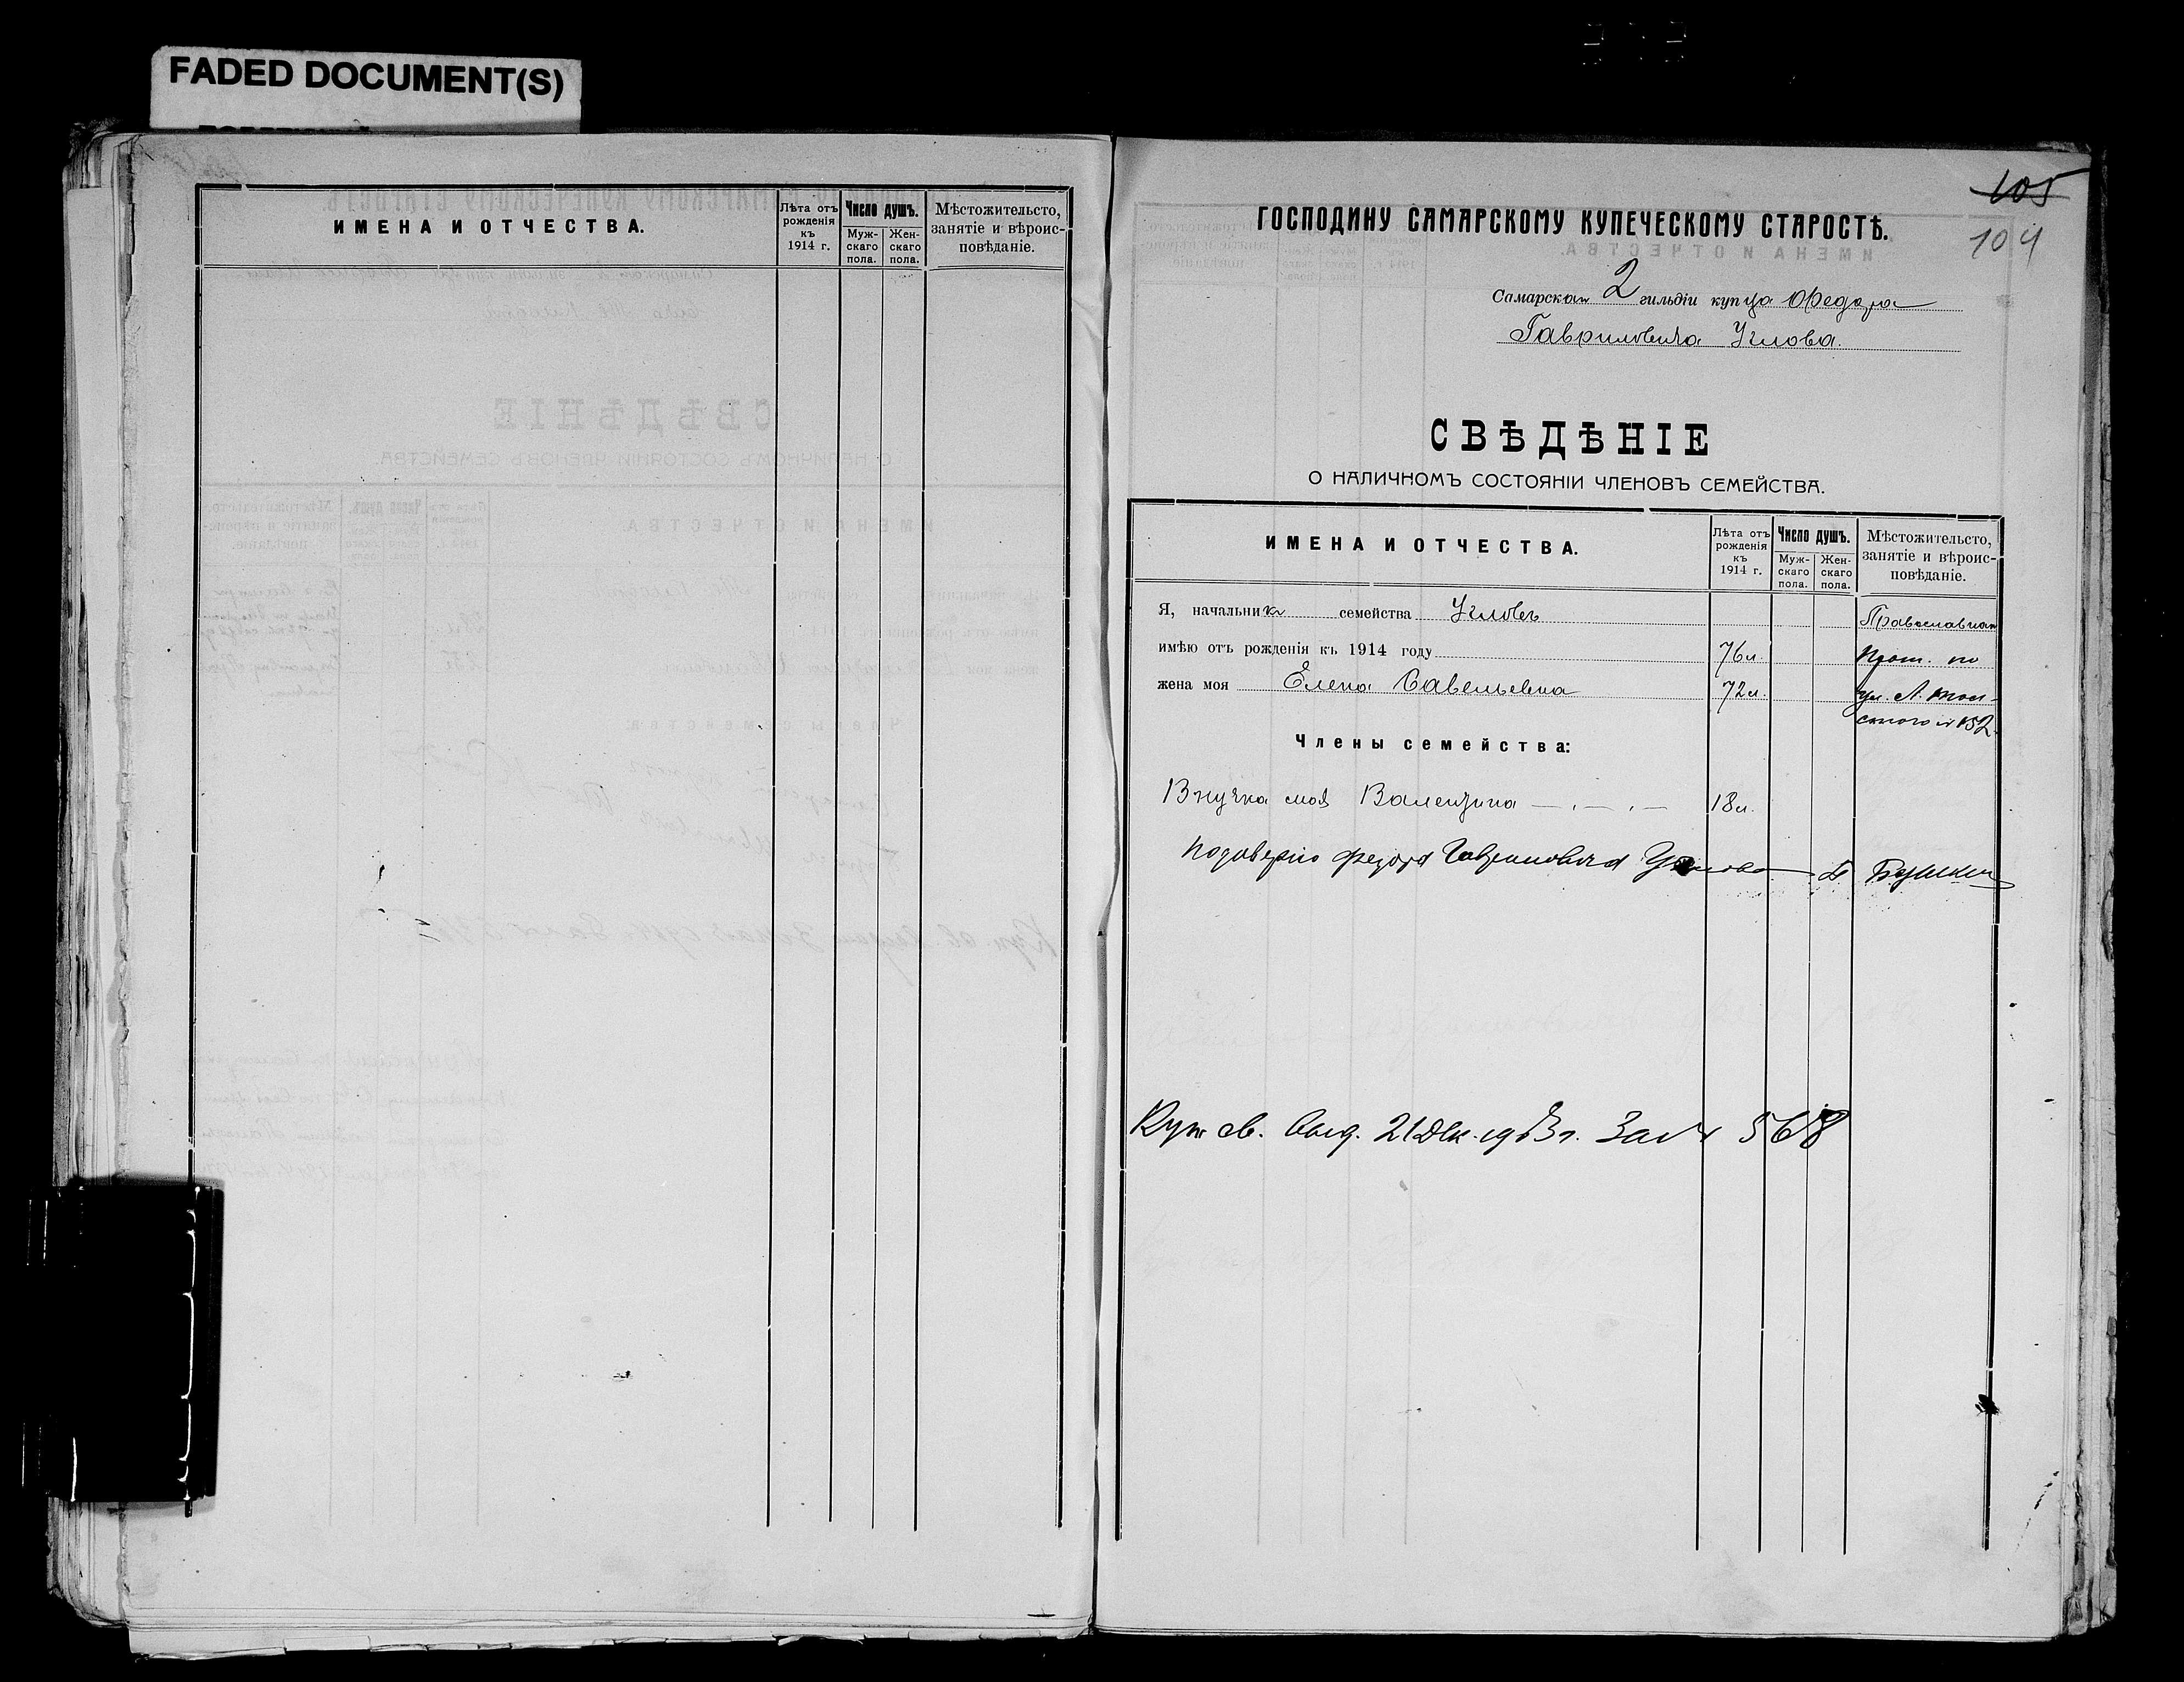 FADED DOCUMENT(S)
ИМЕНА И ОТЧЕСТВА.
Лѣта отъ рожденія къ 1914 г.
Число душъ.
Муж-скаго пола.
Жен-скаго пола.
Мѣстожительсто, занятіе и вѣроис-повѣданіе.
105
104
ГОСПОДИНУ САМАРСКОМУ КУПЕЧЕСКОМУ СТАРОСТѢ.
Самарскаго 2 гильдіи купца Федора
Гавриловича Углова.
СВѢДѢНІЕ
О НАЛИЧНОМЪ СОСТОЯНІИ ЧЛЕНОВЪ СЕМЕЙСТВА.
ИМЕНА И ОТЧЕСТВА.
Лѣта отъ рожденія къ 1914 г.
Число душъ.
Муж-скаго пола.
Жен-скаго пола.
Мѣстожительсто, занятіе и вѣроис-повѣданіе.
Я, начальникъ семейства Угловъ Православная
имѣю отъ рожденія къ 1914 году 76 л. по
жена моя Елена Савельевна 72 л. ул. Л. Тол-
стого № 152
Члены семейства:
Внучка моя Валентина 18 л.
По довѣрію Федора Гавриловича Углова
Куп. св. выд. 21 Дек. 1913 г. за № 568